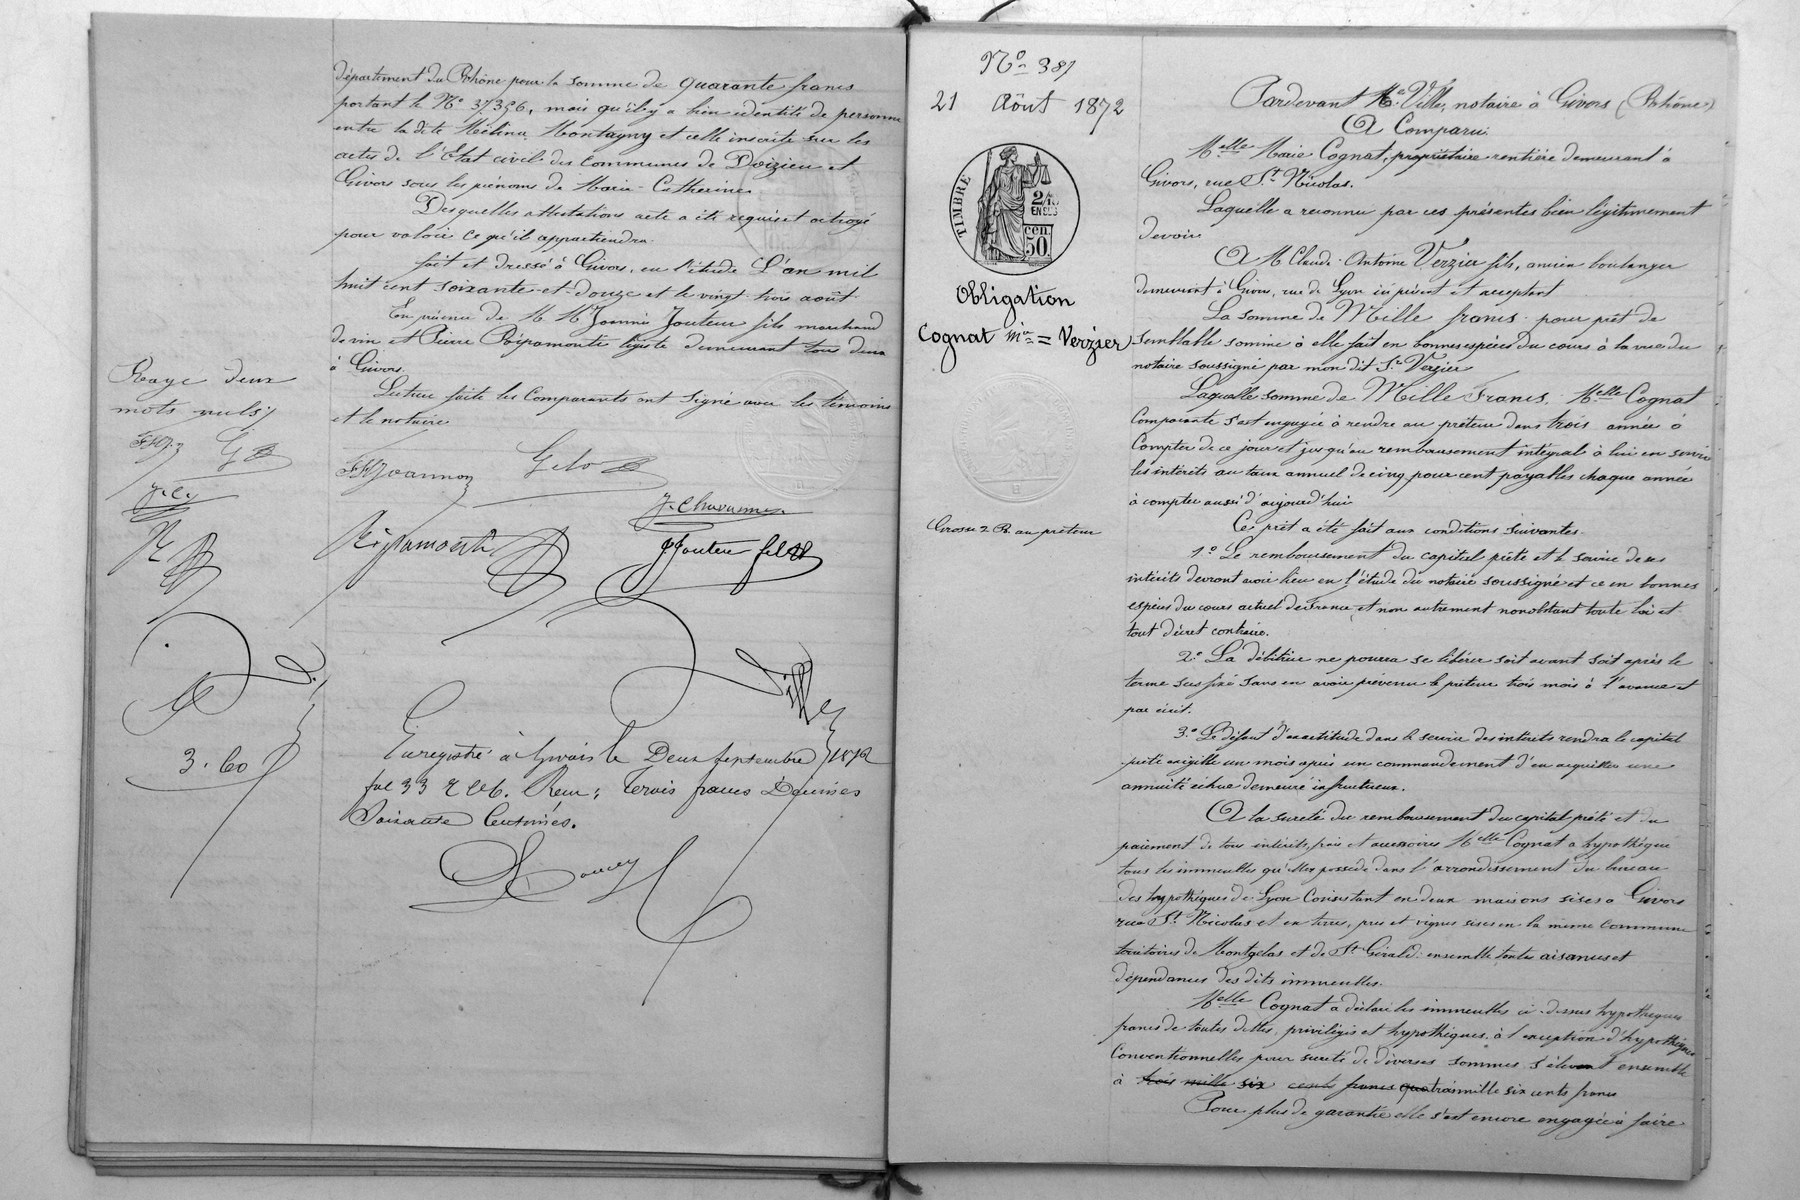 département du Rhône pour la somme de quarante francs
portant le No 37356, mais qu'il y a bien identité de personne
entre la dite Mélina Montagny et celle inscrite sur les
actes de l'Etat civil des communes de Doizieu et
Givors sous les prénoms de Marie-Catherine
Desquelles attestations acte a été requis et octroyé
pour valoir ce qu'il appartiendra.
fait et dressé à Givors, en l'étude L'an mil
huit cent soixante-et-douze et le vingt-trois août
En présence de M M Joannès Jouteur fils marchand
de vin et Pierre Ripamonte lisseur demeurant tous deux
à Givors
Lecture faite les Comparants ont signé avec les témoins
et le notaire
Rayé deux
mots nuls
FHJ
J.C.
FHJoannon
J. Chavanne
Ripamonte
Jouteur fils
Ville
3.60
Enregistré à Givors le Deux septembre 1872
fol 33 R C 6. Reçu: Trois francs Décimes
Soixante Centimes.
No 381
21 Août 1872
TIMBRE
2/10
EN SUS
50 cen.
Obligation
Cognat Mie = Verzier
Grosse 2 R. au prêteur
Pardevant Me Ville, notaire à Givors (Rhône)
A Comparu
Melle Marie Cognat, propriétaire rentière demeurant à
Givors, rue St Nicolas.
Laquelle a reconnu par ces présentes bien légitimement
devoir
A M Claude-Antoine Verzier fils, ancien boulanger
demeurant à Givors, rue de Lyon ici présent et acceptant
La somme de Mille francs pour prêt de
semblable somme à elle fait en bonnes espèces du cours à la vue du
notaire soussigné par mon dit Sr Verzier
Laquelle somme de Mille Francs. Melle Cognat
Comparante s'est engagée à rendre au prêteur dans trois année à
Compter de ce jour et jusqu'au remboursement intégral à lui en servir
les intérêts au taux annuel de cinq pour cent payables chaque année
à compter aussi d'aujourd'hui
Ce prêt a été fait aux conditions suivantes.
1o Le remboursement du capital prêté et le service de ses
intérêts devront avoir lieu en l'étude du notaire soussigné et ce en bonnes
espèces du cours actuel de France et non autrement nonobstant toute loi et
tout décret contraire.
2o La débitrice ne pourra se libérer soit avant soit après le
terme sus fixé sans en avoir prévenu le prêteur trois mois à l'avance et
par écrit.
3o Le défaut d'exactitude dans le service des intérêts rendra le capital
prêté exigible un mois après un commandement d'en acquitter une
annuité échue demeuré infructueux.
A la sureté du remboursement du capital prêté et du
paiement de tous intérêts, frais et accessoires Melle Cognat a hypothéqué
tous les immeubles qu'elle possède dans l'arrondissement du bureau
des hypothèques de Lyon Consistant en deux maisons sises à Givors
rue St Nicolas et en terres, prés et vignes sises en la même commune
territoires de Montgelas et de St Gérald: ensemble toutes aisances et
dépendances des dits immeubles.
Melle Cognat a déclaré les immeubles ci-dessus hypothéqués
francs de toutes dettes, privilèges et hypothèques à l'exception d'hypothèques
Conventionnelles pour sureté de diverses sommes s'élevant ensemble
à trois mille six cents francs qua trois mille six cents francs
Pour plus de garantie elle s'est encore engagée à faire